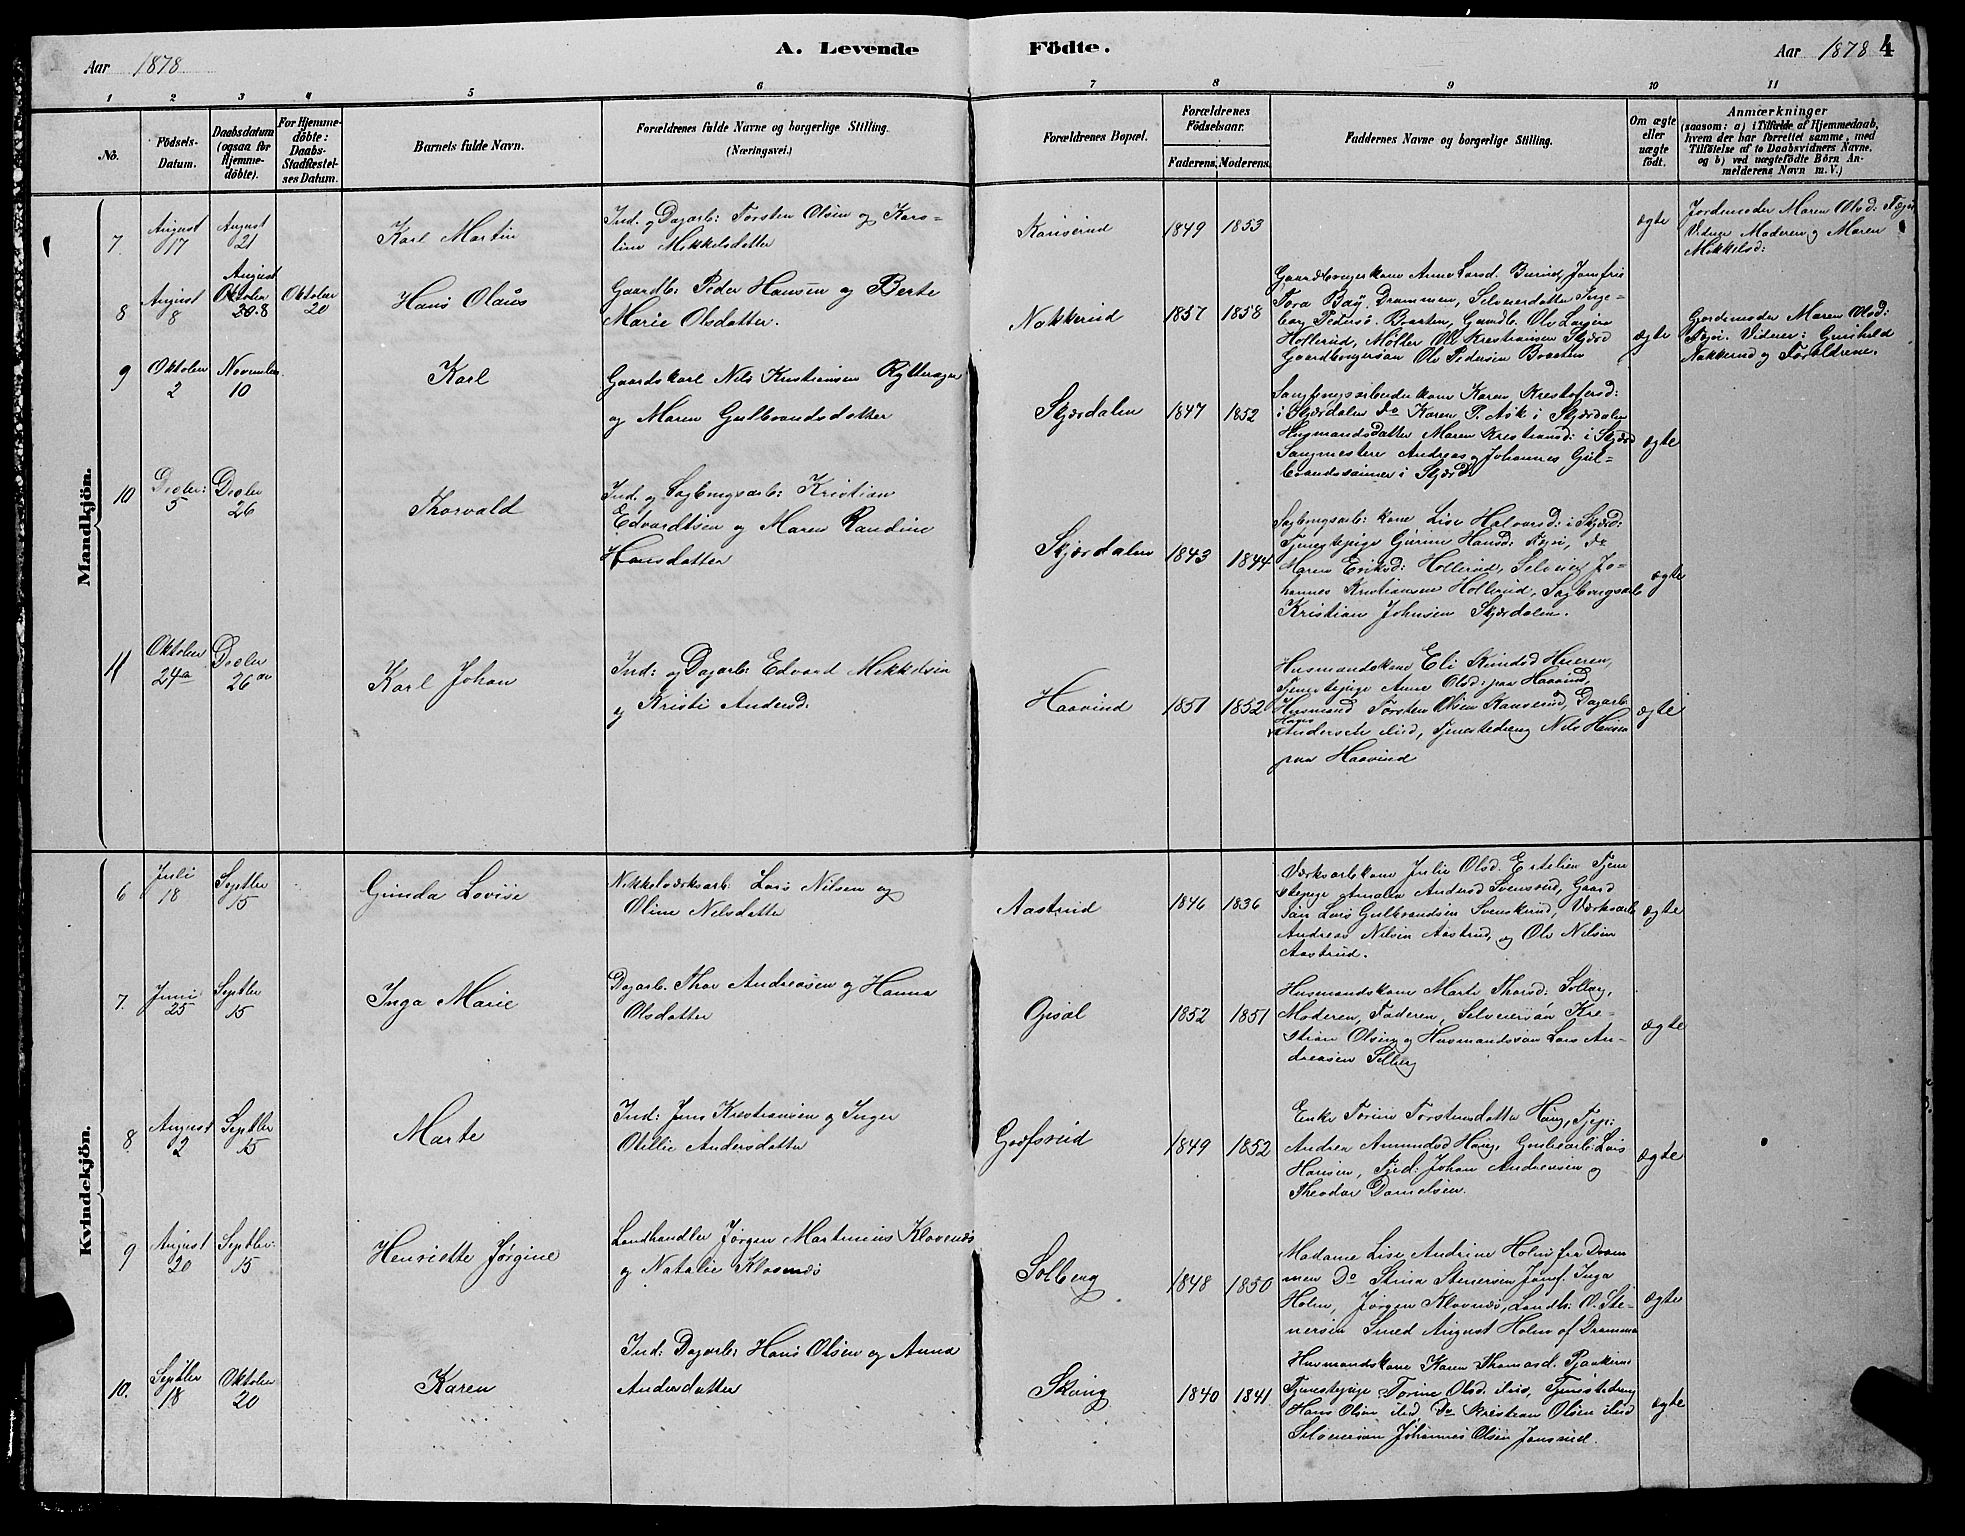 Aar 1878
A. Levende Födte.
Aar 1878 4
1 2 3 4 5 6 7 8 9 10 11
No.
Födsels-Datum.
Daabsdatum (ogsaa for Hjemme-döbte).
For Hjemme-döbte: Daabs-Stadfæstel-ses Datum.
Barnets fulde Navn.
Forældrenes fulde Navne og borgerlige Stilling.
(Næringsvei.)
Forældrenes Bopæl.
Forældrenes Födselsaar.
Faderens. Moderens.
Faddernes Navne og borgerlige Stilling.
Om ægte eller uægte födt.
Anmærkninger
(saasom: a) i Tilfælde af Hjemmedaab,
hvem der har forrettet samme, med
Tilföielse af to Daabsvidners Navne,
og b) ved uægtefödte Börn An-
melderens Navn m. V.)
Mandkjön.
7. August 17 August 21 Karl Martin
Ind. og Dagarb: Torsten Olsen og Karo-
line Mikkelsdatter
Kanserud 1849 1853 ægte
Jordemoder Maren Olsd:
Vidner Moderen og Maren
Mikkelsd:
8 August 8 August Oktober 20.8 Oktober 20 Hans Olaus
Gaardb: Peder Hansen og Berte
Marie Olsdatter.
Nakkerud 1857 1858
Gaardbrugerkone Anne Larsd. Burud, Jomfru
Tora Drammen, Selveierdatter Inge-
borg Pedersd. Braaten, Gaardb. Ole
Hollerud, Møller Ole Kristiansen
Gaardbrugersøn Ole Pedersen Braaten
ægte
Gjordemoder Maren Olsd:
Vidner: Gunhild
Nakkerud og Forældrene.
9 Oktober 2 November 10 Karl
Gaardskarl Nils Kristiansen Rytterager
og Maren Gulbrandsdatter
Skjærdalen 1847 1852
Karen Kristofersd:
i Skjærdalen Do Karen P. Ask i Skjærdalen
Husmandsdatter Maren Kristiansd: i Skjærd
Andreas og Johannes Gul-
brandssønner i Skjærd.
ægte
10 Decbr: 5 Decbr 26 Thorvald
Ind. og Sagbrugsarb: Kristian
Edvardtsen og Maren Randine
Hansdatter
Skjærdalen 1843 1844
Sagbrugsarb: kone Lise Halvorsd: i Skjærd:
Tjenestepige Gurine Hansd: Do
Maren Eriksd: Hollerud, Selveier Jo-
hannes Kristiansen Hollerud, Sagbrugsarb
Kristian Johnsen Skjærdalen.
ægte
11 Oktober 24de Decbr 26de Karl Johan
Ind: og Dagarb: Edvard Mikkelsen
og Kristi Andersd:
Haavind 1851 1852
Husmandskone Eli Knudsd
Tjenestepige Anne Olsd: paa Haavind,
Husmand Torsten Olsen Kanserud, Dagarb:
Hans
Tjenestedreng Nils Hansen
paa Haavind
ægte
Kvindekjön.
6 Juli 18 Septbr 15 Gunda Lovise
Nikkelverksarb: Lars Nilsen og
Oline Nilsdatter
Aastrud 1846 1836
Værksarbkone Julie Olsd. Tjene
stepige Amalia Andersd Svensrud, Gaard
Søn Lars Gulbrandsen Svenserud, Værksarb
Andreas Nilsen Aastrud, og Ole Nilsen
Aastrud.
ægte
7. Juni 25 Septbr 15 Inga Marie
Dagarb. Thor Andreasen og Hanna
Olsdatter
Gjesøl 1852 1851
Husmandskone Marte Thorsd: Solberg,
Moderen, Faderen, Selveiersøn Kri-
stian Olsen og Husmandssøn Lars An-
dreasen Solberg
ægte
8. August 12 Septbr 15 Marte
Ind: Jens Kristiansen og Inger
Otilie Andersdatter
1849 1852
Enke Torine Torstensdatter Haug, Tjp:
Andrea Amundsd Haug, Lars
Hansen, Tjed: Johan Andreasen og
Theodor Danielsen.
ægte
9 August 20 Septbr: 15 Henriette Jørgine
Landhandler Jørgen Martinius Klovnæs
og Natalie Klovnæs
Solberg 1848 1850
Madame Lise Andrine Holm fra Dram
men Do Stina Stenersen Jomf. Inga
Holm, Jørgen Klovnæs, Landh: O. Ste-
nersen Smed August Holm af Drammen
ægte
10. Septbr 18 Oktober 20 Karen
Ind: Dagarb: Hans Olsen og Anne
Andersdatter
Skoug 1840 1841
Husmandskone Karen Thomasd.
Tjenestepige Torine Olsd. ibid, Tjenestedreng
Hans Olsen ibid Do Kristian Olsen ibid
Selveiersøn Johannes Olsen Jonsrud.
ægte